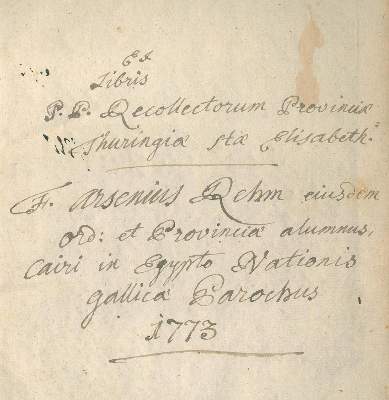 Ex
Libris
P. P. Recollectorum Provinciæ
Thuringiæ stæ Elisabeth:
F. Arsenius Rehm eiusdem
Ord: et Provinciæ alumnus,
Cairi in Egypto Nationis
gallicæ Parochus
1773